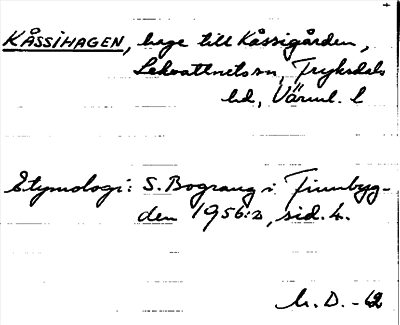 KÅSSIHAGEN, hage till Kåssigården,
Lekvattnets sn, Fryksdals
hd, Värml. l
Etymologi: S. Bograng i Finnbyg-
den 1956:2, sid. 4.
M. D. -62